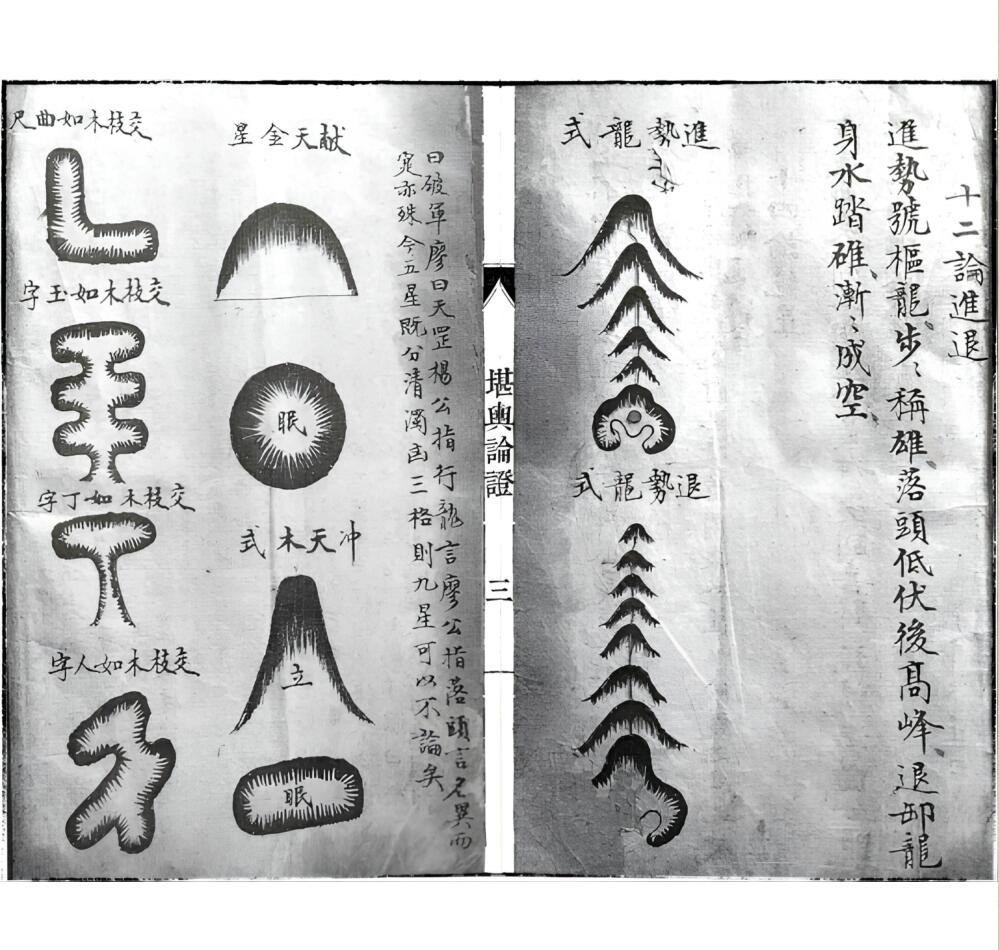 十二論進退
進勢號樞龍、步〻稱雄、落頭低伏後高峰、退卸龍
身水踏碓、漸〻成空、
進勢龍式
退勢龍式
堪輿論證
三
曰破軍廖曰天罡楊公指行龍言廖公指落頭言名異而
寔亦殊今五星既分清濁凶三格則九星可以不論矣
献天金星
眠
冲天木式
立
眠
交枝木如曲尺
交枝木如玉字
交枝木如丁字
交枝木如人字